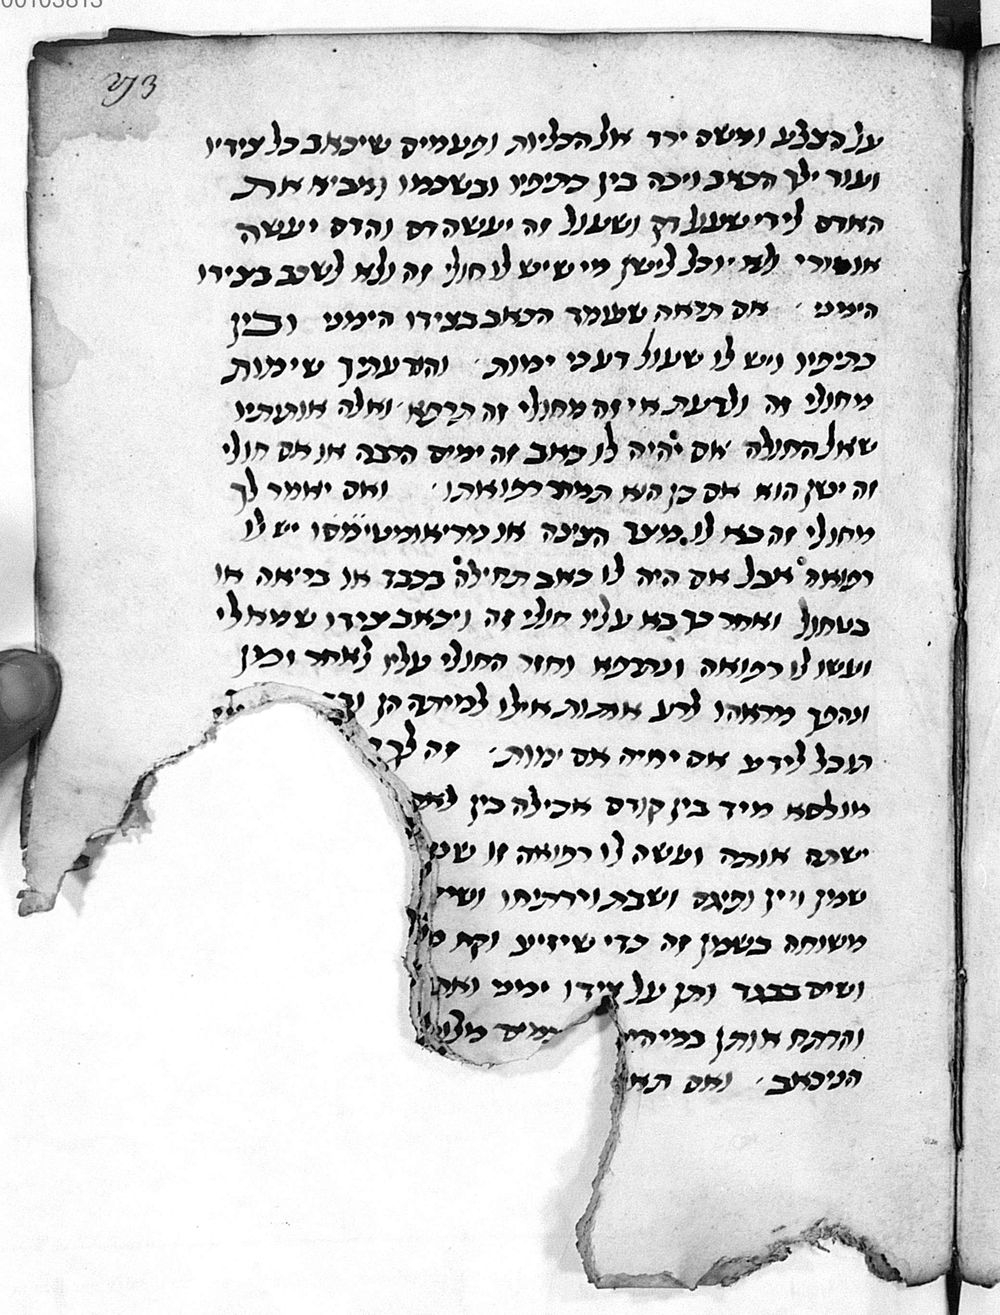 00103813
293
על הצלע ומשם ירד אל הכליות ופעמים שיכאב כל צידיו
ועוד ילך הכאב ויכה בין כתיפיו ובשכמו ומביא את
האדם לידי שעול רק ושעול זה יעשה דם והדם יעשה
לא יוכל לישן מי שיש לו חולי זה ולא לשכב בצידו
הימיני אם תראה שעומד הכאב בצידו הימני ובין
כתיפיו ויש לו שעול דע כי ימות והודעתיך שימות
מחולי זה ולדעת אי זה מחולי זה תרפא ואלה אותותיו
שאל החולה אם יהיה לו כאב זה ימים הרבה או אם חולי
זה ישן הוא אם כן הוא רפואתו ואם יאמר לך
מחולי זה בא לו מצד הצינה או יש לו
רפואה אבל אם היה לו כאב תחילה בכבד או בריאה או
בטחול ואחר כך בא עליו חולי זה ויכאב צידו שמאלי
ועשו לו רפואה ונתרפא וחזר החולי עליו לאחר זמן
ונהפך מראהו לרע אותות אילו למיתה הן
תוכל לידע אם יחיה אם ימות זה לך
מולסא מיד בין קודם אכילה בין לאח
ישתה אותה ועשה לו רפואה זו
שמן ויין ופיגם ושבת וירתיחו
משוחה בשמן זה כדי שיזיע וקח
ושים בבגד ותן על צידו ימיני
והרתח אותן במי
הניכאב ואם